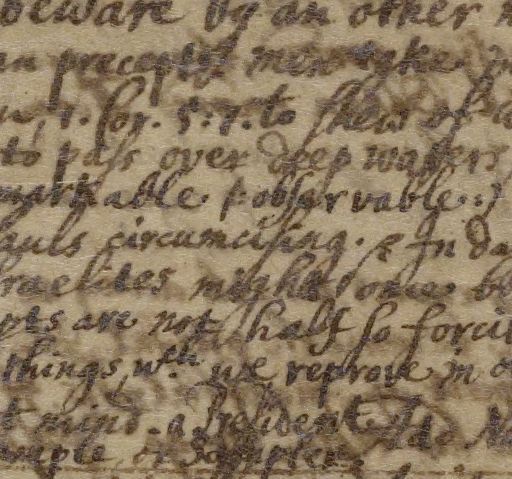 beware by an other
precepts men take
1. Cor. 5. 7. to shew of
to pass over deep waters
markable. & observable.
auls circumcising. & In da
raelites might some
pts are not half so forci
things, wch we reprove in o
mind. a President
ample, or Sampler